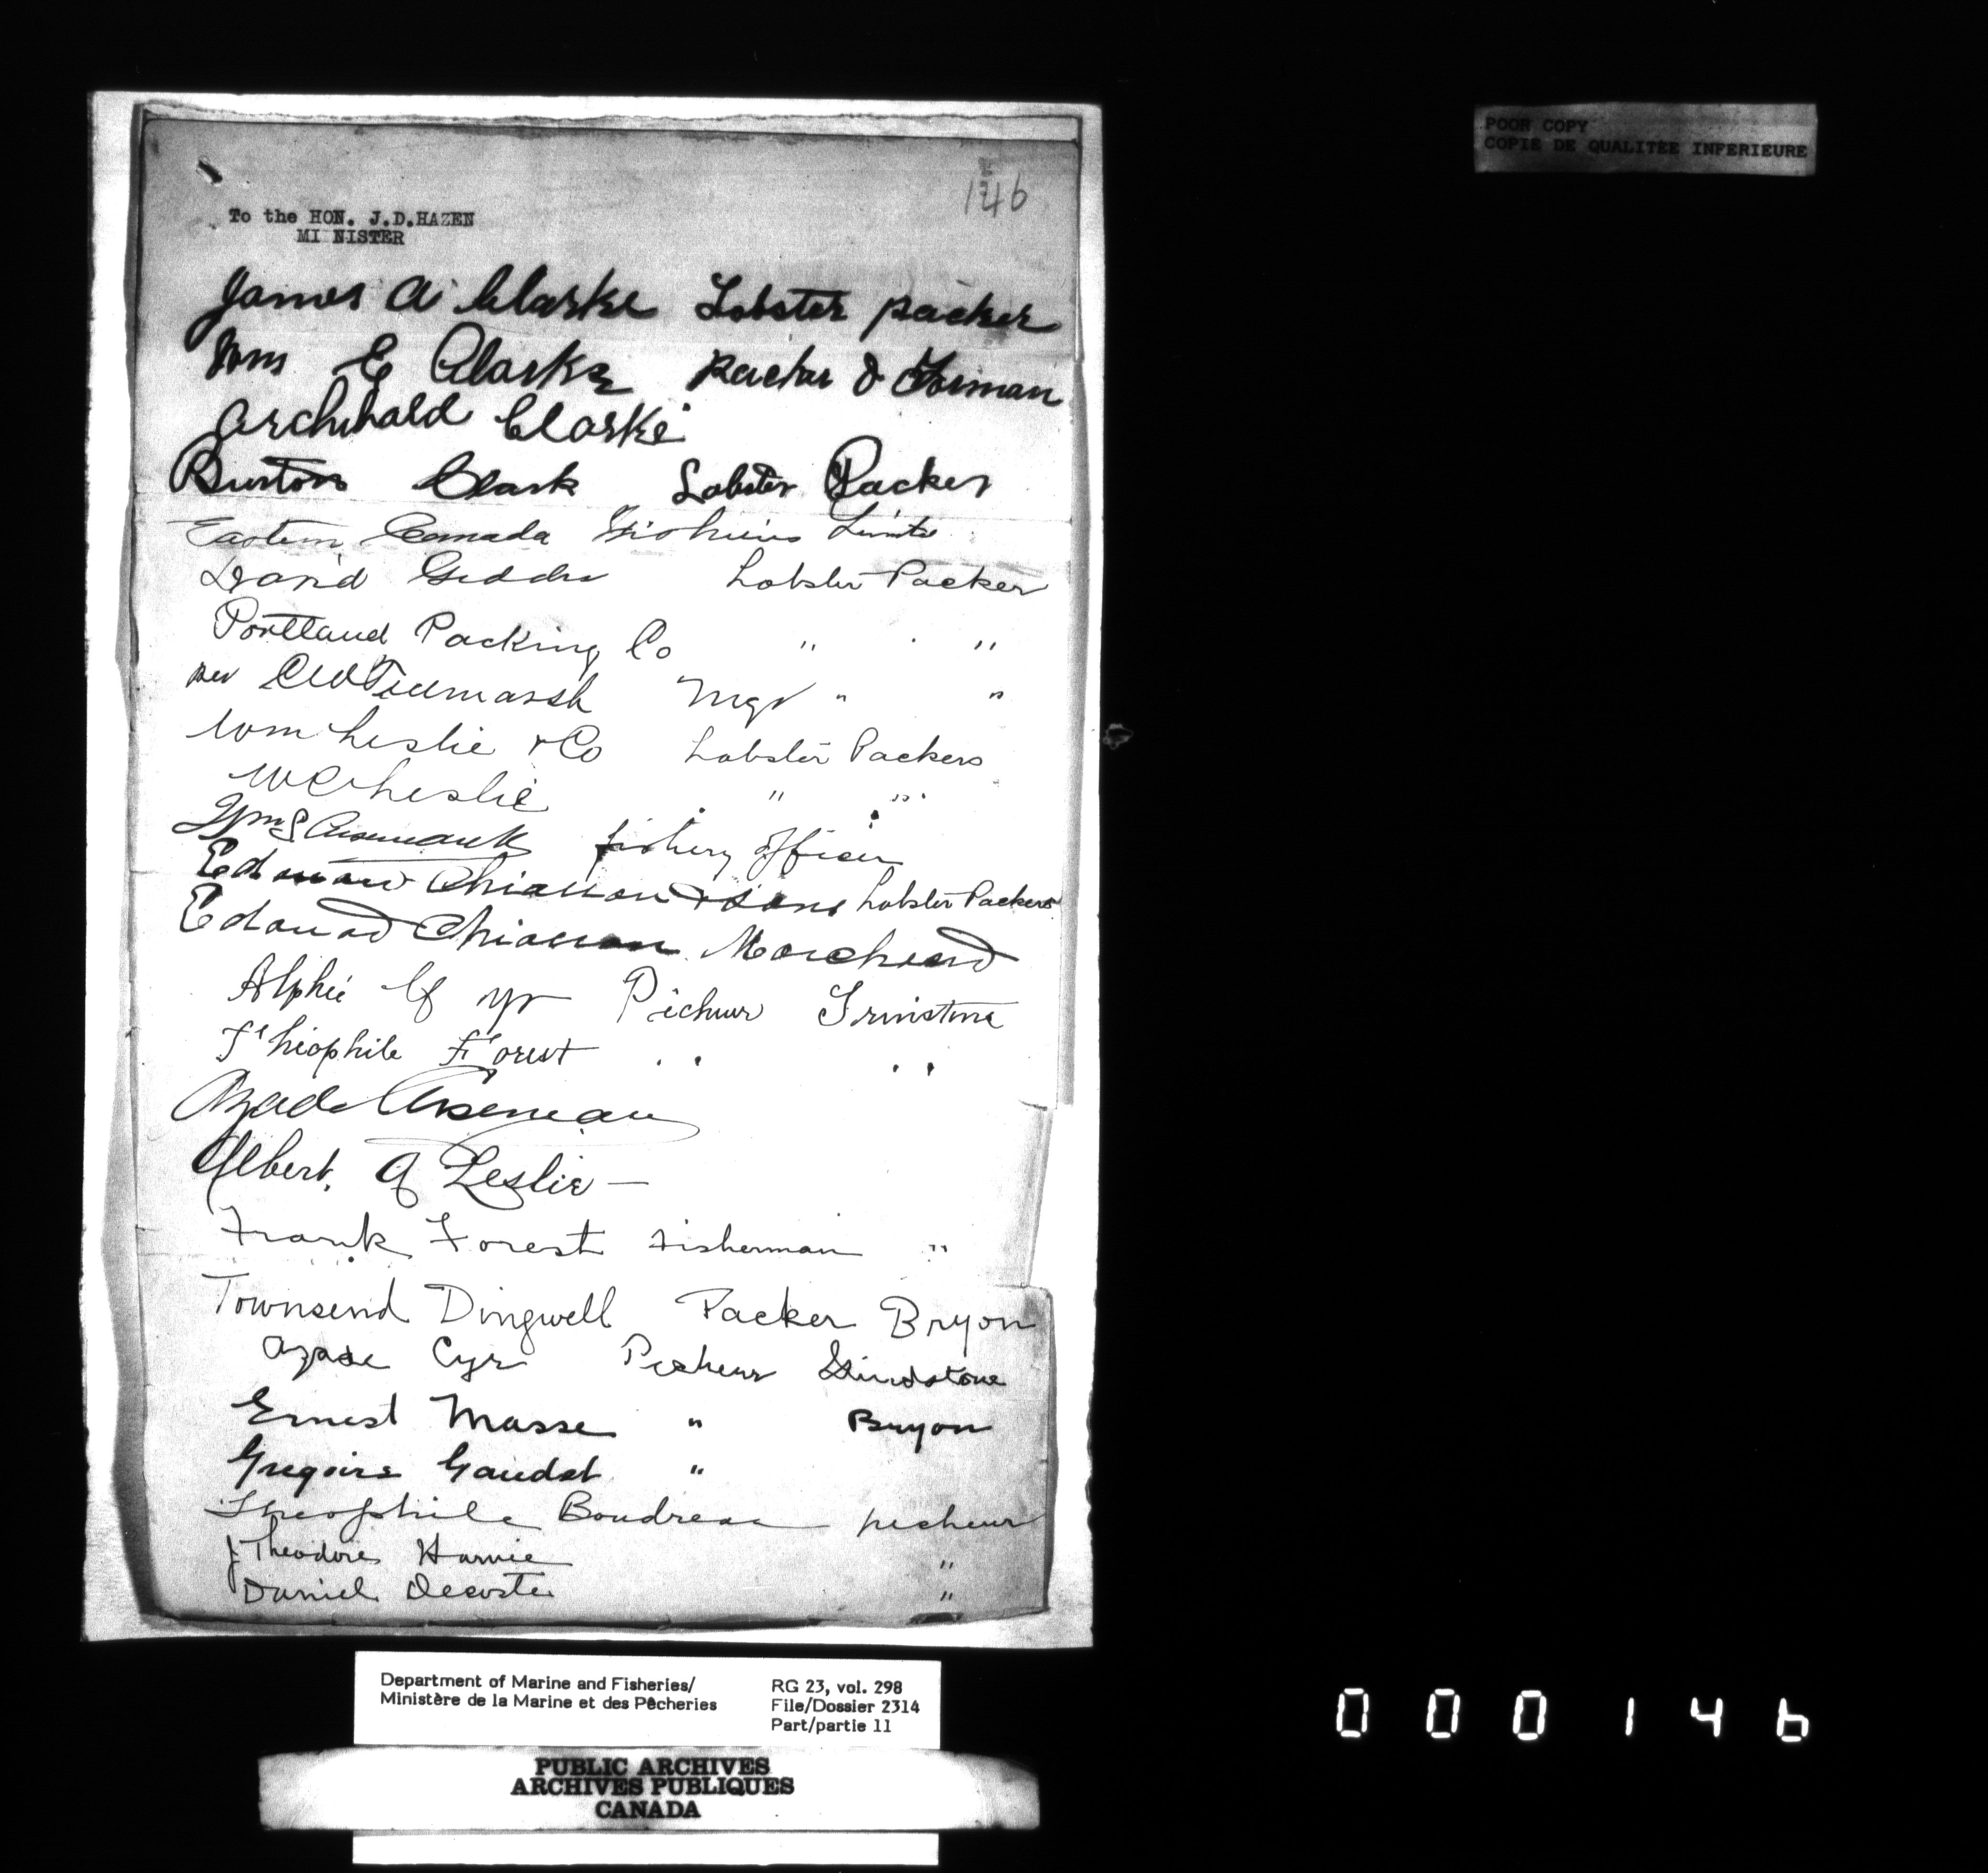 POOR COPY
COPIE DE QUALITÉE INFERIEURE
146
To the HON. J.D.HAZEN
MINISTER
James A Clarke Lobster packer
Wm E Clarke packer & Forman
Archibald Clarke
Burton Clark Lobster Packer
Eastern Canada Fisheries Limited
David Geddes Lobster Packer
Portland Packing Co " "
per CW Tidmarsh Mgr " "
Wm Leslie & Co Lobster Packers
WC Leslie " "
Wm S fishery officer
Edouard Chiasson & Sons Lobster Packers
Edouard Chiasson Marchand
Alphé Cyr Pêcheur Grinstone
Théophile Forest " "
Azade Arseneau
Albert A Leslie —
Frank Forest Fisherman "
Townsend Dingwell Packer Bryon
Azade Cyr Pecheur Grindstone
Ernest Masse " Bryon
Gregoire Gaudet "
Theophile Boudreau pecheur
J Theodore Harvie "
Daniel Decoste "
Department of Marine and Fisheries/ RG 23, vol. 298
Ministère de la Marine et des Pêcheries File/Dossier 2314
Part/partie 11
PUBLIC ARCHIVES
ARCHIVES PUBLIQUES
CANADA
000146